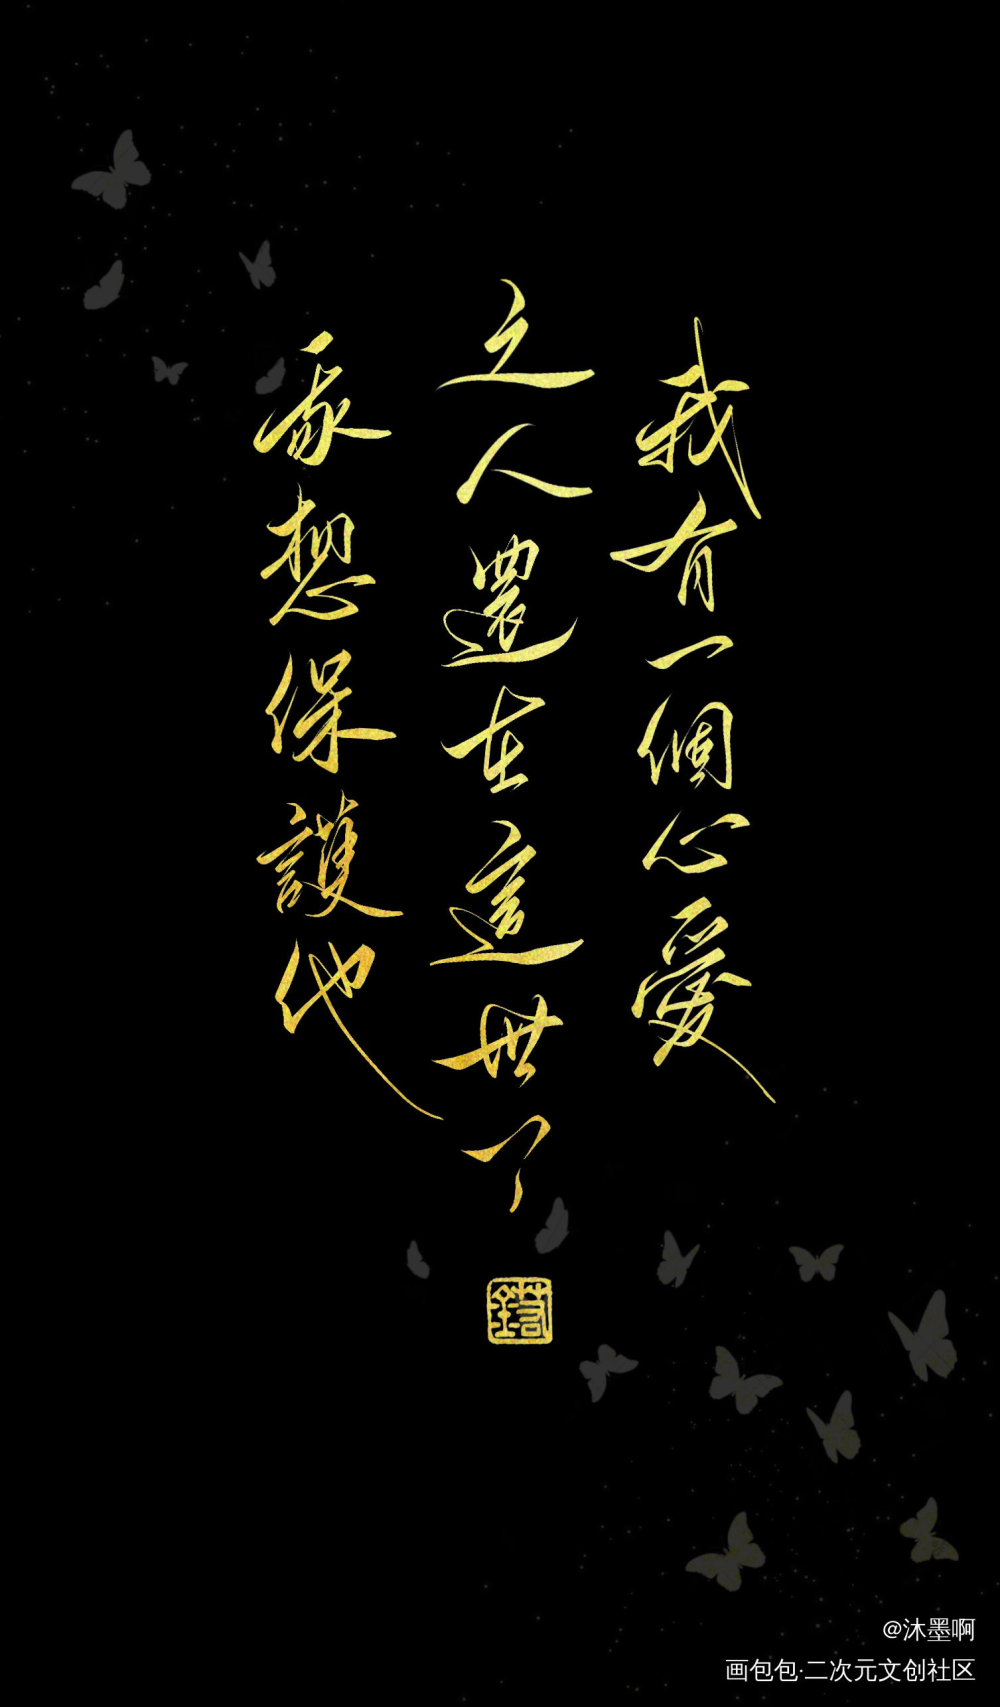 我有一個心愛
之人還在這世了
我想保護他
@沐墨啊
画包包·二次元文创社区